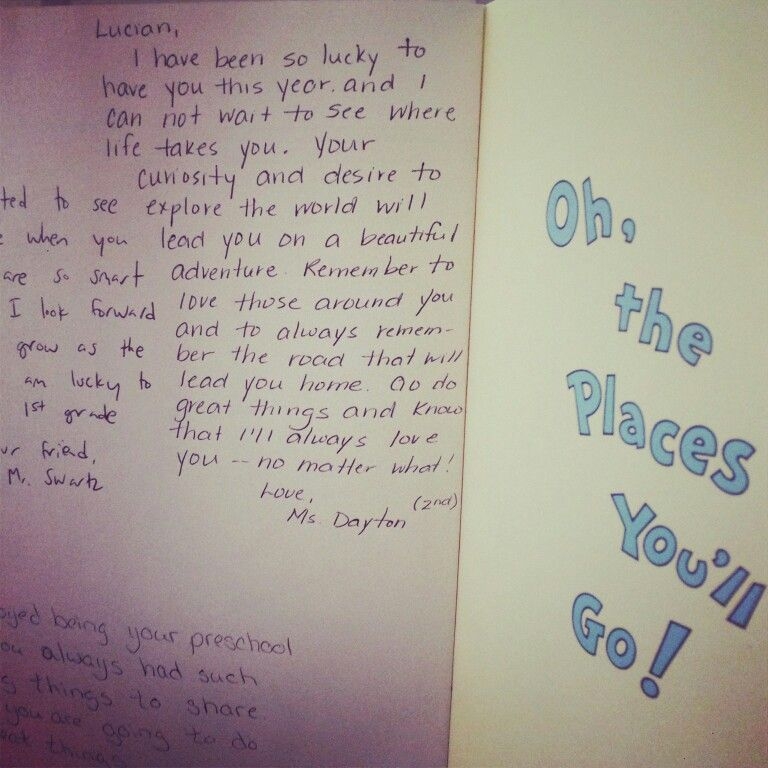 Lucian,
I have been so lucky to
have you this year. and I
can not wait to see where
life takes you. Your
curiosity and desire to
explore the world will
lead you on a beautiful
adventure. Remember to
love those around you
and to always remem-
ber the road that will
lead you home. Go do
great things and know
that I'll always love
you -- no matter what!
Love,
Ms. Dayton (2nd)
to see
when you
are so smart
I look forward
grow as the
am lucky to
1st grade
friend,
Mr. Swartz
being your preschool
always had such
things to share
you are going to do
things
Oh,
the
Places
You'll
Go!